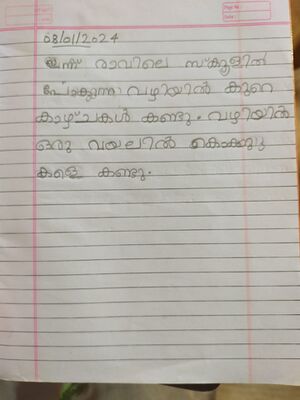 08/01/2024
ഇന്ന് രാവിലെ സ്കൂളിൽ
പോകുന്ന വഴിയിൽ കുറെ
കാഴ്ചകൾ കണ്ടു. വഴിയിൽ
ഒരു വയലിൽ കൊക്കു
കളെ കണ്ടു.
Page No.:
Date: